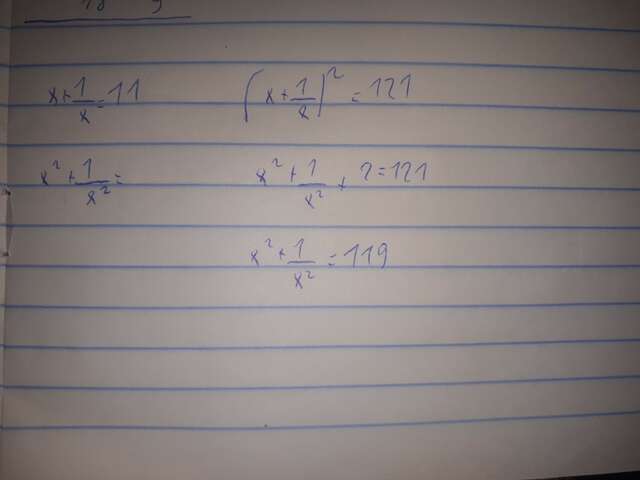 x + 1/x = 11
(x + 1/x)² = 121
x² + 1/x² =
x² + 1/x² + 2 = 121
x² + 1/x² = 119